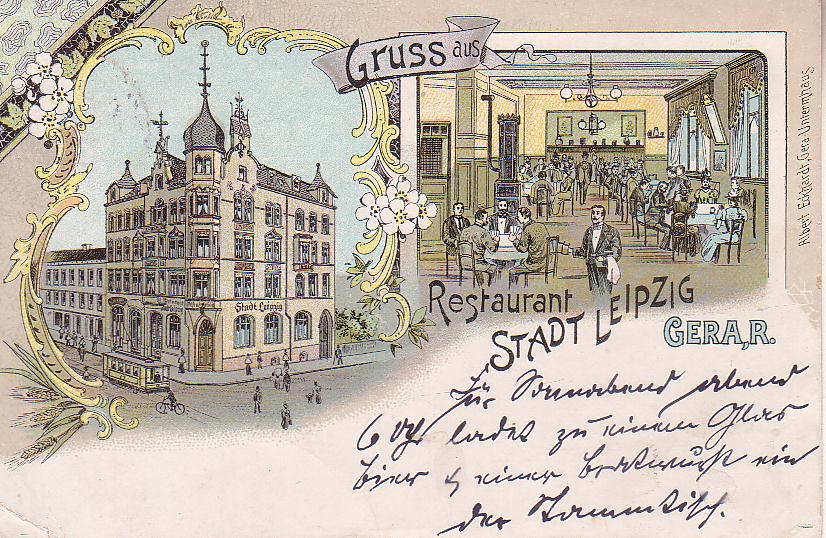 Gruss aus
Stadt Leipzig
Restaurant
STADT LEIPZIG
GERA, R.
Albert Eckhardt, Gera-Untermhaus
Für Sonnabend abend
6 Uhr ladet zu einem Glas
Bier & einer Bratwurst ein
der Stammtisch.